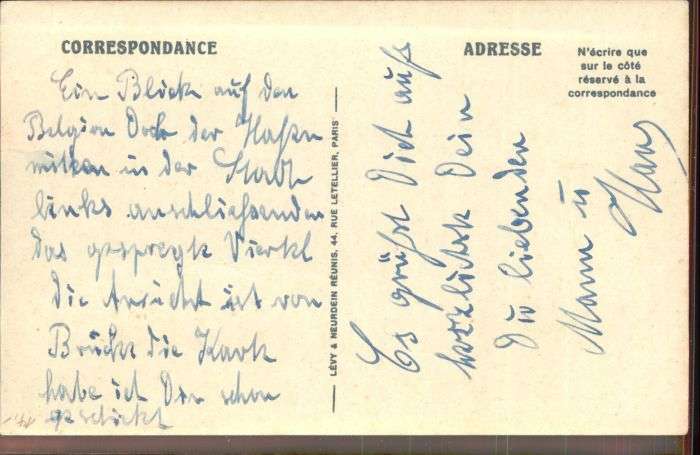 CORRESPONDANCE
Ein Blick auf den
Belgion Dock der Hafen
mitten in der Stadt
links anschließenden
das gesprengte Viertel
die Ansicht ist von
Brücke die Karte
habe ich Dir schon
geschickt
LÉVY & NEURDEIN RÉUNIS, 44, RUE LETELLIER, PARIS
ADRESSE
N'écrire que
sur le côté
réservé à la
correspondance
Es grüßt Dich aufs
herzlichste Dein
Dir liebenden
Mann u
Hans